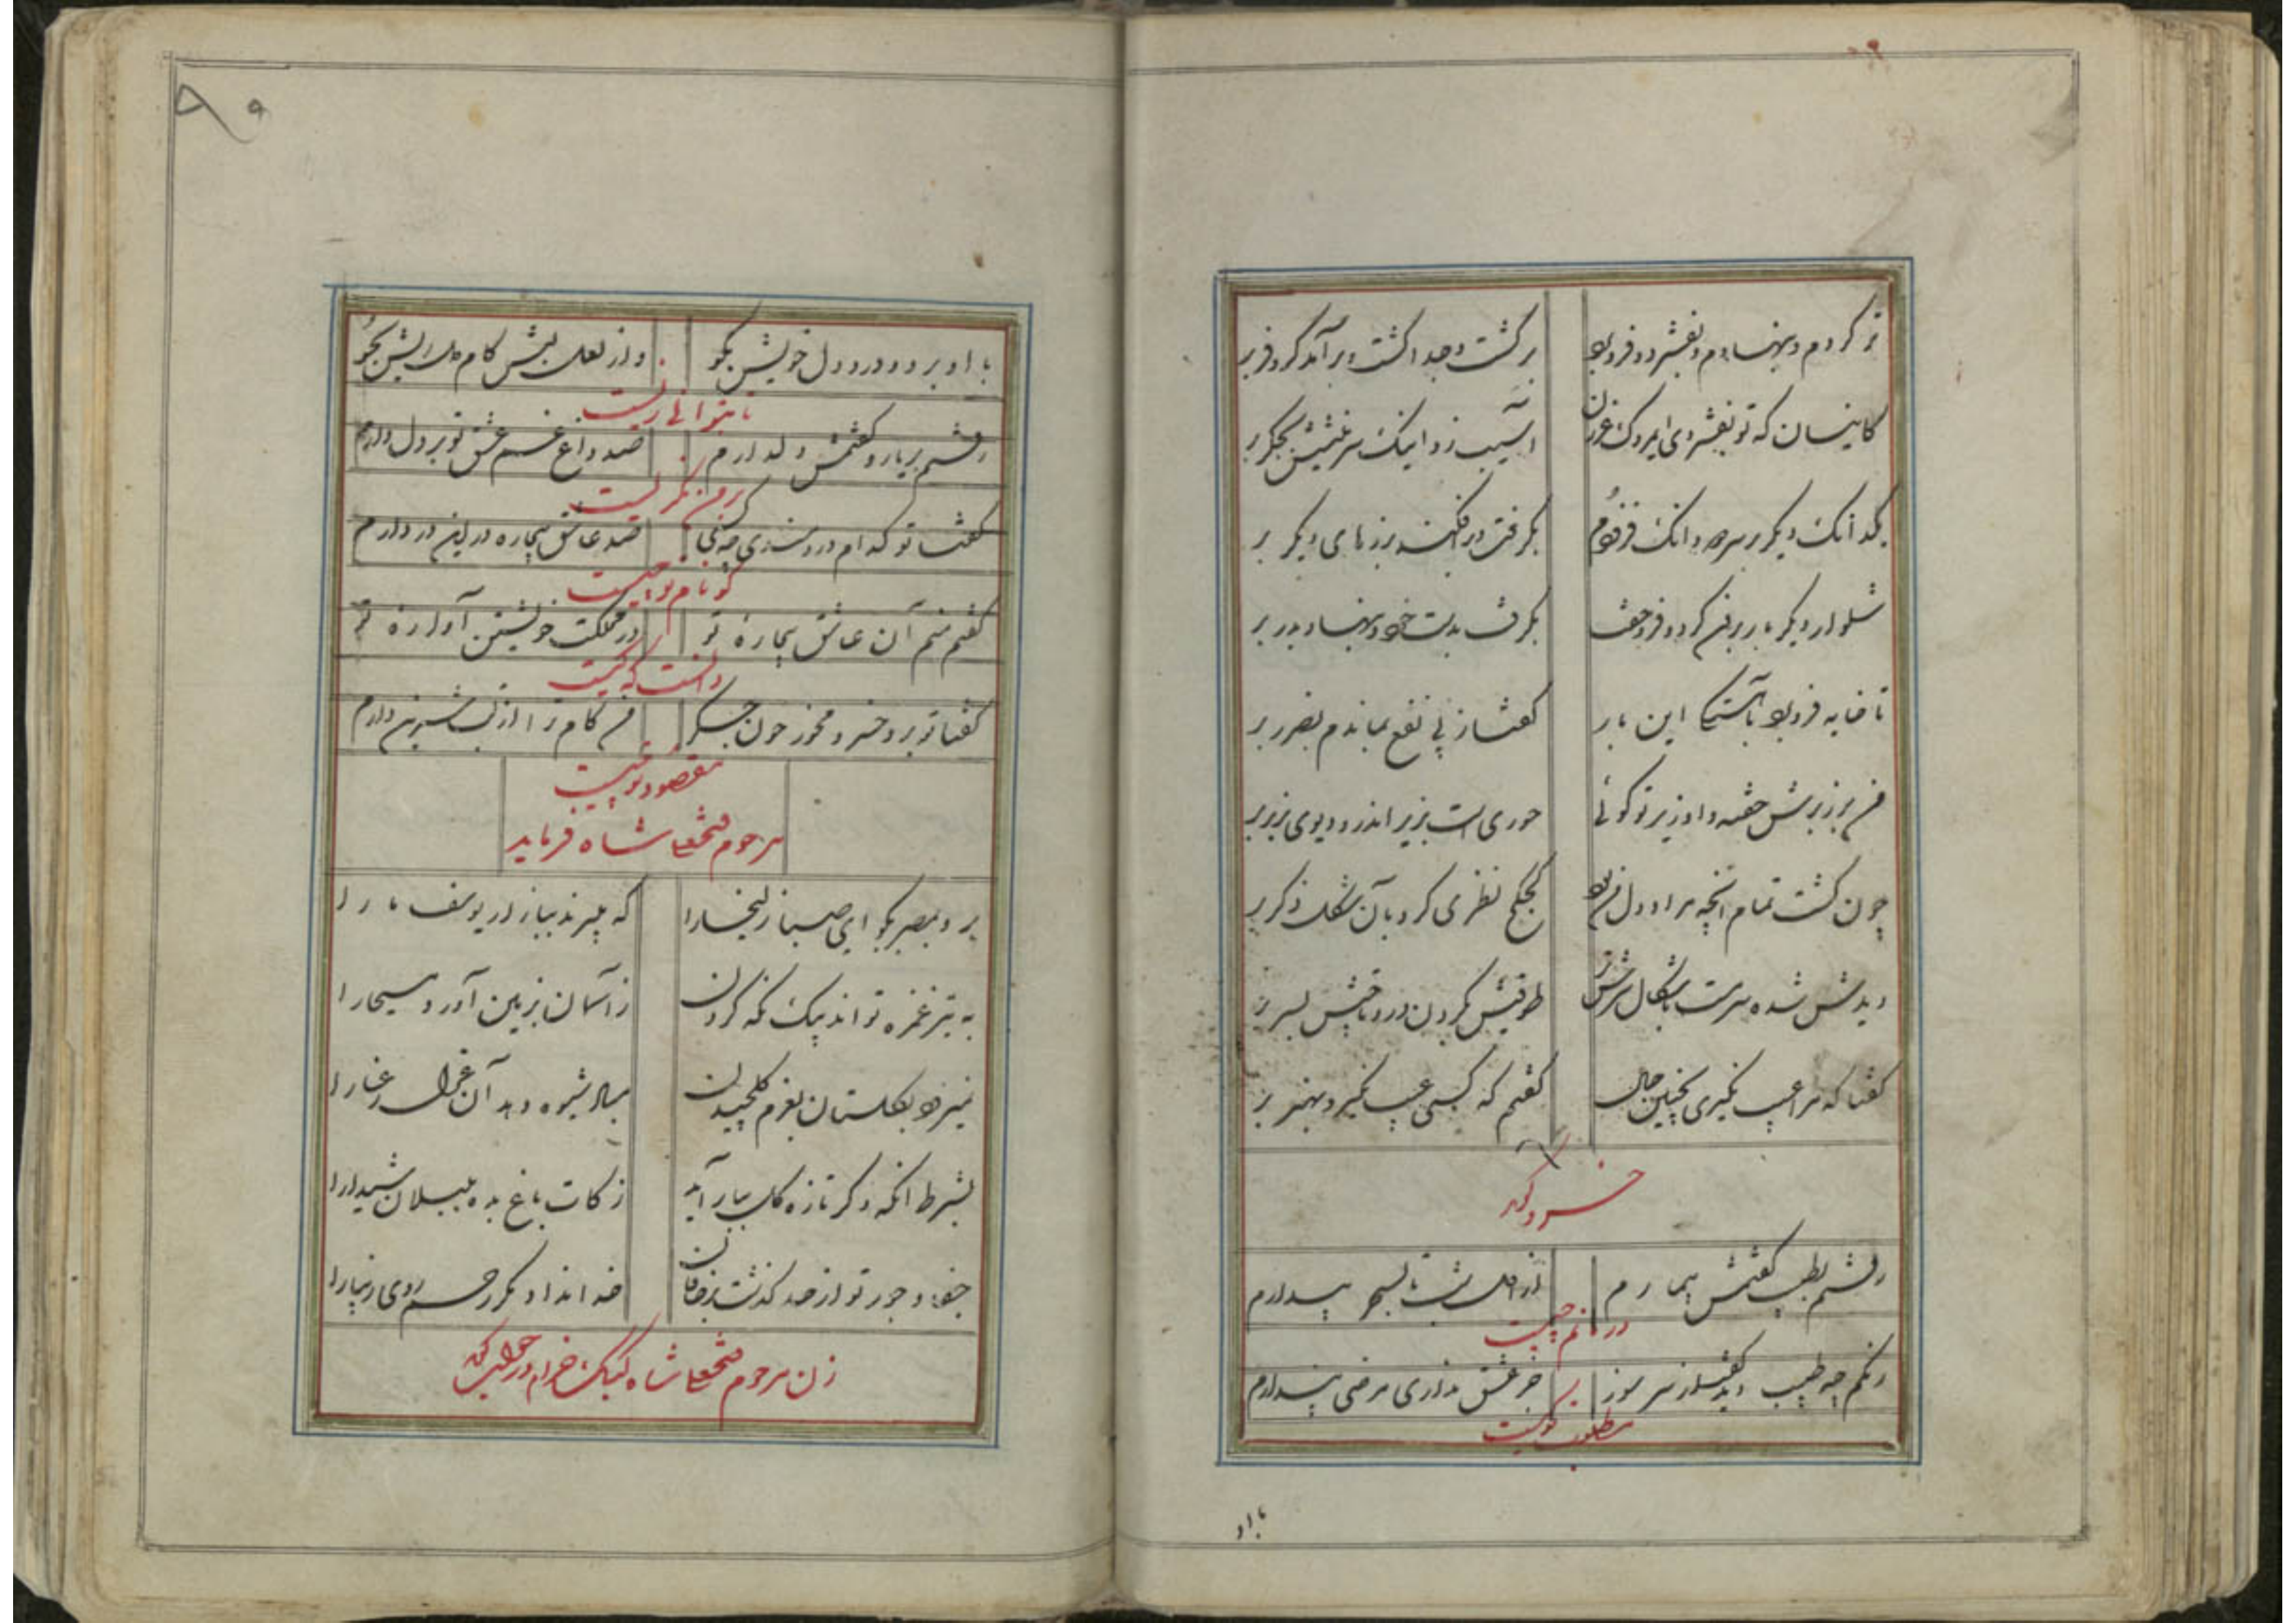 تر کردم و بنهادم و بفشرد و فرو برد
برگشت و جدا گشت و برآمد کر و فر بر
کاینسان که تو بفشردی
آسیب زد اینک سر بجگر بر
یکدانگ دیگر بر سر و دانگ
بگرفت و درافکند برزهای دیگر بر
شلوار دیگر باره برون کرد و فرو خفت
بگرفت بدست خود و بنهاد بدر بر
تا خایه فرو برد این بار
گفتا ز پی نفع بماندم بضرر بر
من بر زبرش خفته و او زیر تو گوئی
حوری است بزیر اندر و دیوی بزبر بر
چون گشت تمام آنچه مراد دل من بود
نظری کرد بآن شکل ذکر بر
دیدش شده سرمست
طوقیش بگردن در و تاجیش بسر بر
گفتا که مرا عیب نگیری بچنین حال
گفتم که کسی عیب نگیرد بهنر بر
خسرو گوید
رفتم بطبیب گفتمش بیمارم
از اول شب تا بسحر بیدارم
درمانم چیست
نبضم چو طبیب دید گفت از سر سوز
جز عشق نداری مرضی پندارم
مطلوب تو کیست
با او
با او برو و درد دل خویش بگو
واز لعل لبش کام دل ریش بجو
تا بتوانی زیست
رفتم بر یار و گفتمش دلدارم
صد داغ غم عشق تو بر دل دارم
بر من نگریست
گفتا تو کدام دردمندی چه کسی
صد عاشق بیچاره در این در دارم
گو نام تو چیست
گفتم منم آن عاشق بیچاره تو
در مملکت خویشتن آواره تو
دانست که کیست
گفتا تو برو خسرو مخور خون جگر
من کام ترا از لب شیرین دارم
مقصود تو چیست
مرحوم فتحعلی شاه فرماید
برو بمصر بگو ای صبا زلیخا را
که پیرند بیازار یوسف ما را
به تیر غمزه تواند بیک نگه کردن
ز آسمان بزمین آورد مسیحا را
نمیرود بگلستان بعزم گلچیدن
بهار شیوه دهد آن غزال رعنا را
بشرط آنکه اگر تازه گل ببار آید
زکات باغ بده بلبلان شیدا را
جفا و جور تو از حد گذشت بر خاقان
خدا نداد مگر رحم روی زیبا را
زن مرحوم فتحعلی شاه کبک خرام در جواب گوید